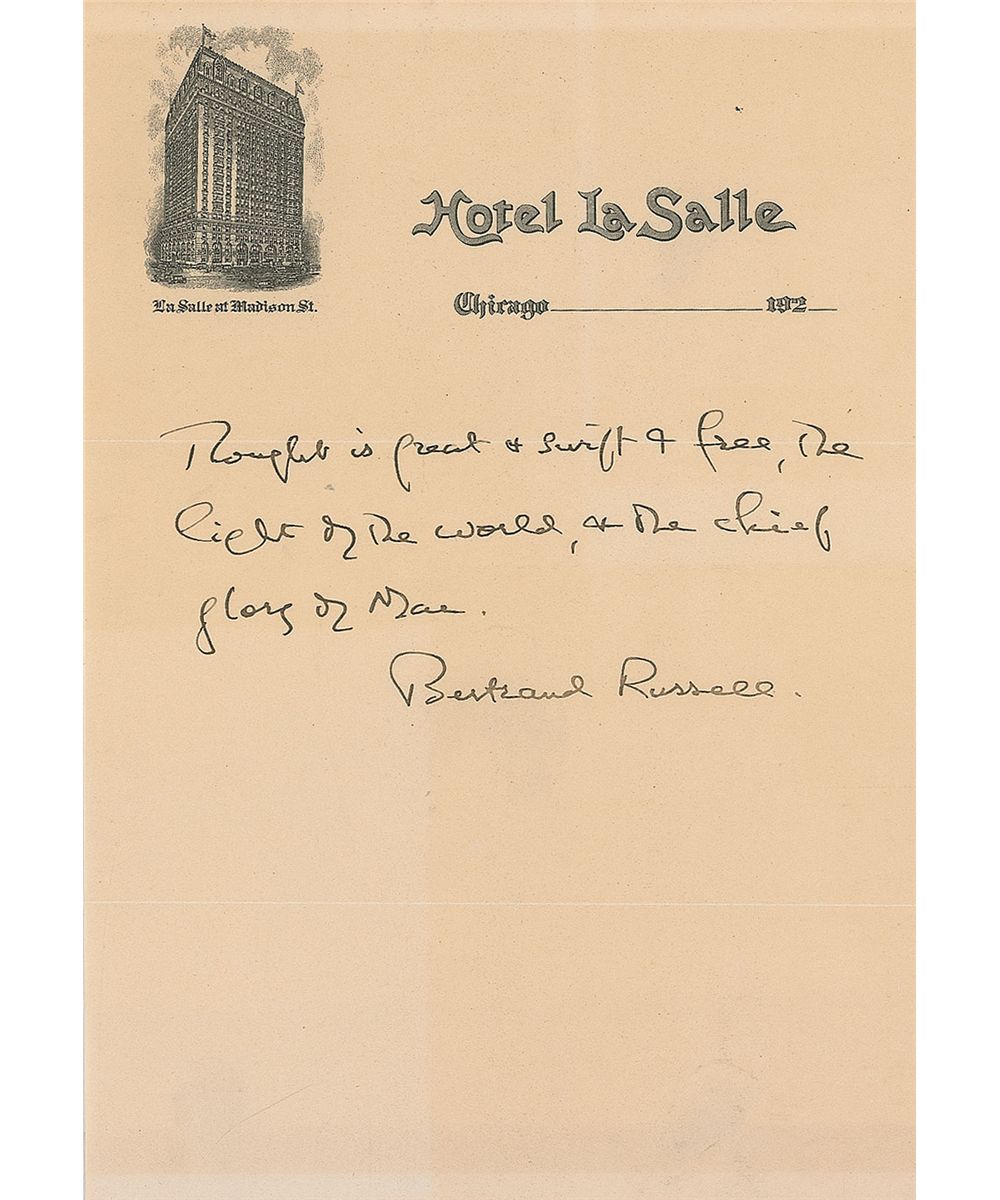 Hotel La Salle
La Salle at Madison St.
Chicago 192
Thought is great & swift & free, the
light of the world, & the chief
glory of Man.
Bertrand Russell.